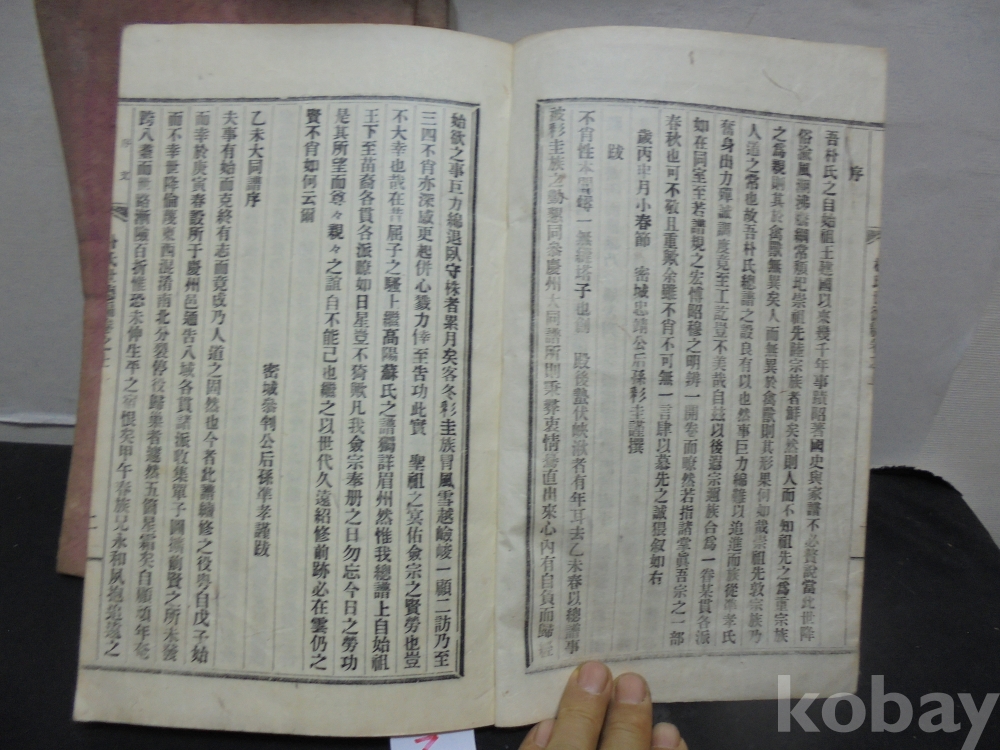 序
吾朴氏之自始祖王建國以來幾千年事蹟昭著國史與家譜不必贅說當此世降
俗渝風潮沸盪綱常頹圮崇祖先睦宗族者鮮矣然則人而不知祖先之爲重宗族
之爲親則其於禽獸無異矣人而無異於禽獸則其形果何如哉崇祖先敦宗族乃
人道之常也故吾朴氏總譜之設良有以也然事巨力綿難以追進而族從準孝氏
奮身出力殫誠調度竟至工訖豈不美哉自玆以後遐宗邇族合爲一卷某貫各派
如在同室至若譜規之宏博昭穆之明辨一開卷而瞭然若指諸掌眞吾宗之一部
春秋也可不敬且重歟余雖不肖不可無一言肆以慕先之誠猥叙如右
歲丙申月小春節 密城忠靖公后孫彩圭謹撰
跋
不肖性本 一無 子也 殷後蟄伏峽湫者有年耳去乙未春以總譜事
該彩圭族之勤懇同參慶州大同譜所則秉彛衷情 直出來心內有自負而歸
始欲之事巨力綿退臥守株者累月矣客冬彩圭族冒風雪越險峻一顧二訪乃至
三四不肖亦深感更起併心戮力倖至告功此實 聖祖之冥佑僉宗之賢勞也豈
不大幸也哉在昔屈子之騷上繼高陽蘇氏之譜獨詳眉州然惟我總譜上自始祖
王下至苗裔各貫各派瞭如日星豈不猗歟凡我僉宗奉册之日勿忘今日之勞功
是其所望而尊々親々之誼自不能已也繼之以世代久遠紹修前跡必在雲仍之
賢不肖如何云爾
密城參判公后孫準孝謹跋
乙未大同譜序
夫事有始而克終有志而竟成乃人道之固然也今者此譜續修之役粤自戊子始
而幸於庚寅春設所于慶州邑通告八域各貫諸派收集單子圖 前賢之所未發
而不幸世降倫廢東西混淆南北分裂停役歸巢者遽然五箇星霜矣自顧頹年奄
跨八耋而世路漸險百折惟恐未伸生平之宿恨矣甲午春族兄永和夙抱追遠之
序文